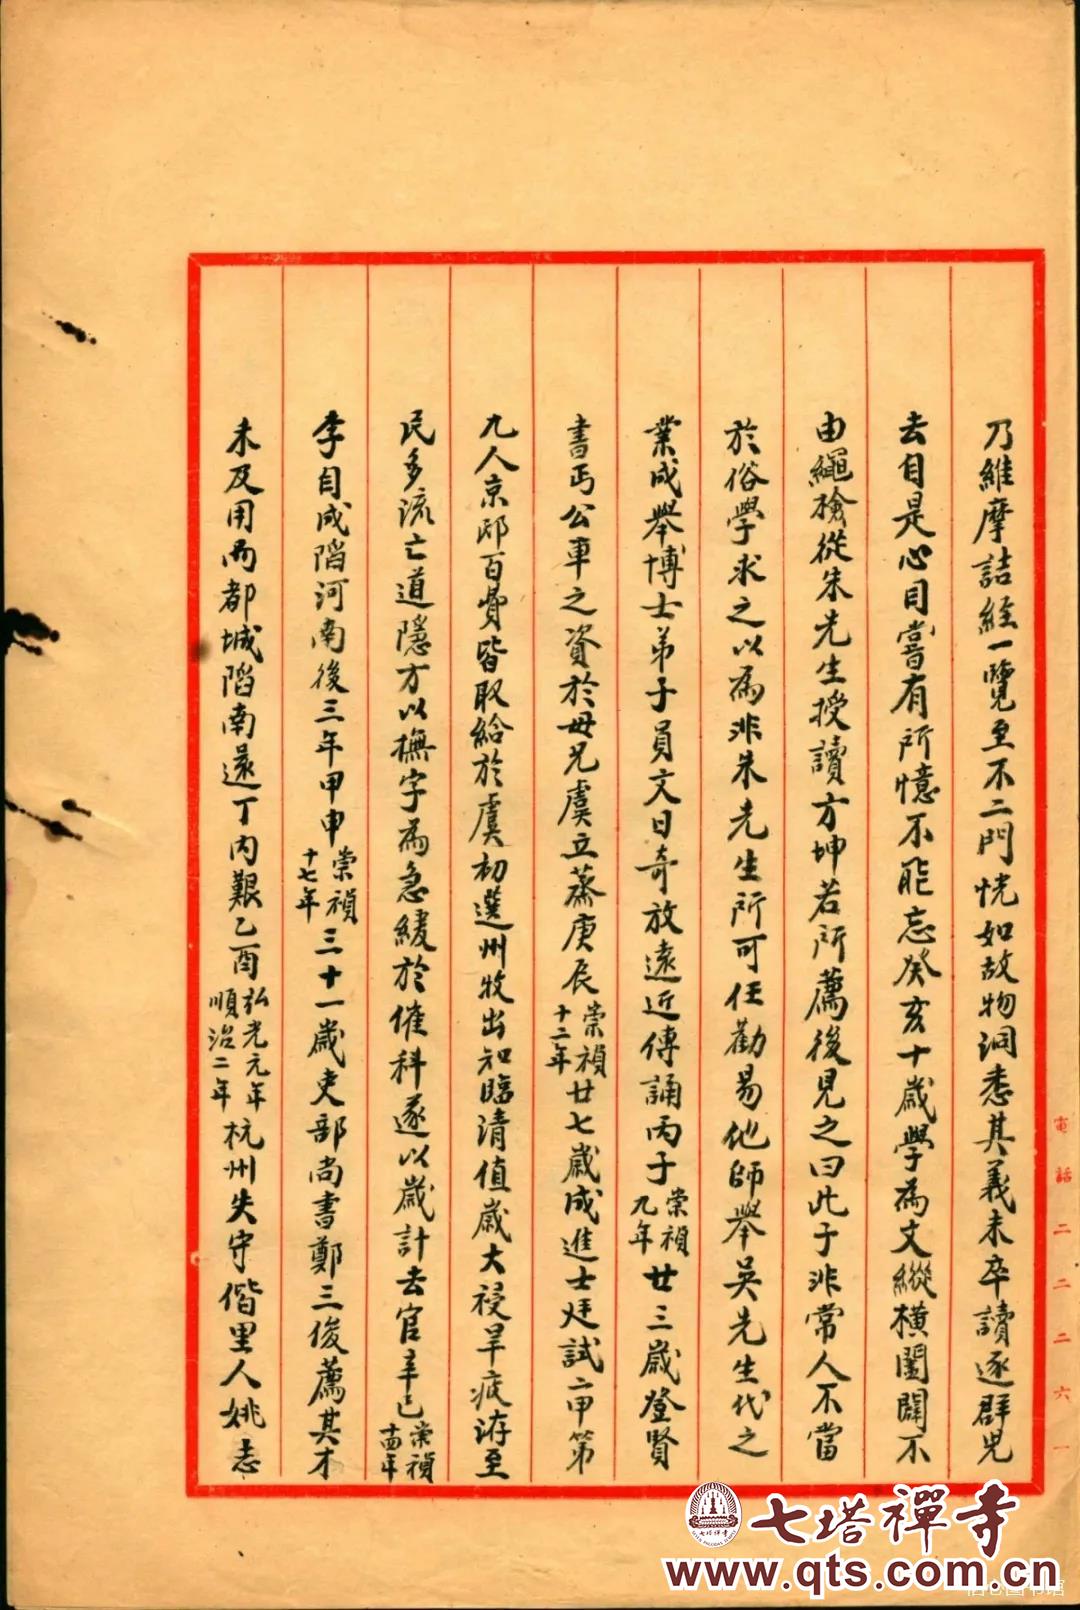 乃維摩詰經一覽至不二門恍如故物洞悉其義未卒讀逐群兒
去自是心目嘗有所憶不能忘癸亥十歲學為文縱橫闔闢不
由繩檢從朱先生授讀方坤若所薦後見之曰此子非常人不當
於俗學求之以為非朱先生所可任勸易他師舉吳先生代之
業成舉博士弟子員文日奇放遠近傳誦丙子崇禎九年廿三歲登賢
書丐公車之資於母兄虞立蒸庚辰崇禎十二年廿七歲成進士廷試二甲第
九人京邸百費皆取給於虞初選州牧出知臨清值歲大祲旱疫洊至
民多流亡道隱方以撫字為急緩於催科遂以歲計去官辛巳崇禎十四年
李自成陷河南後三年甲申崇禎十七年三十一歲吏部尚書鄭三俊薦其才
未及用而都城陷南還丁內艱乙酉弘光元年順治二年杭州失守偕里人姚志
電話二二二六一
七塔禪寺
www.qts.com.cn